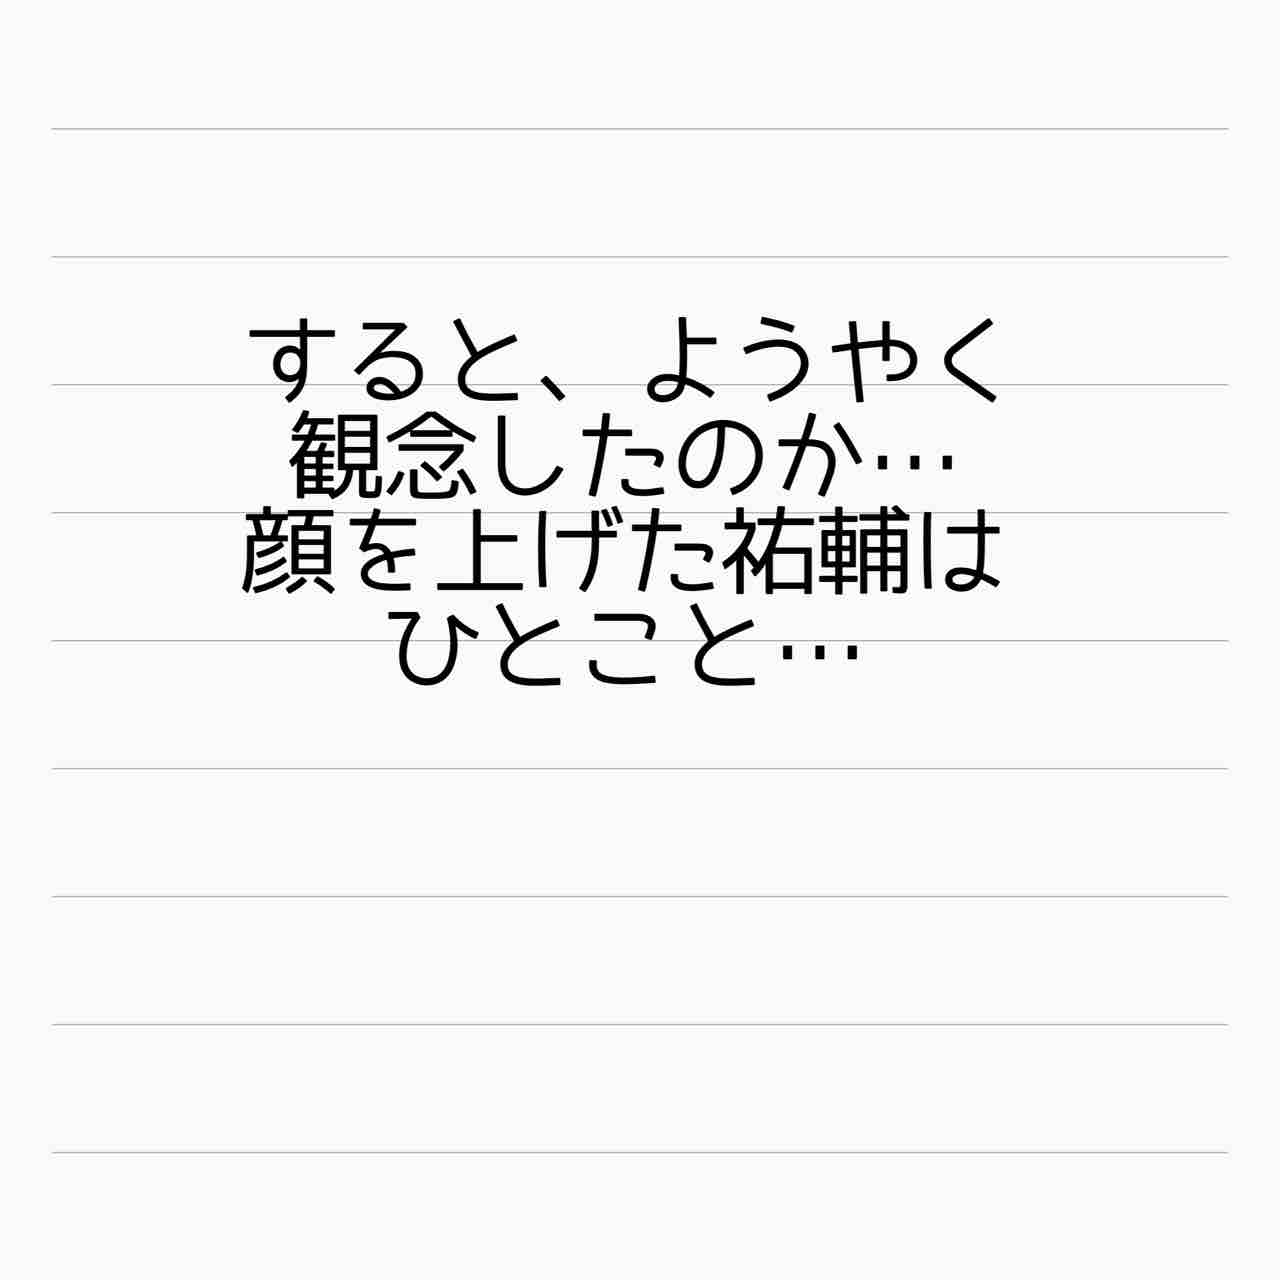 すると、ようやく
観念したのか…
顔を上げた祐輔は
ひとこと…